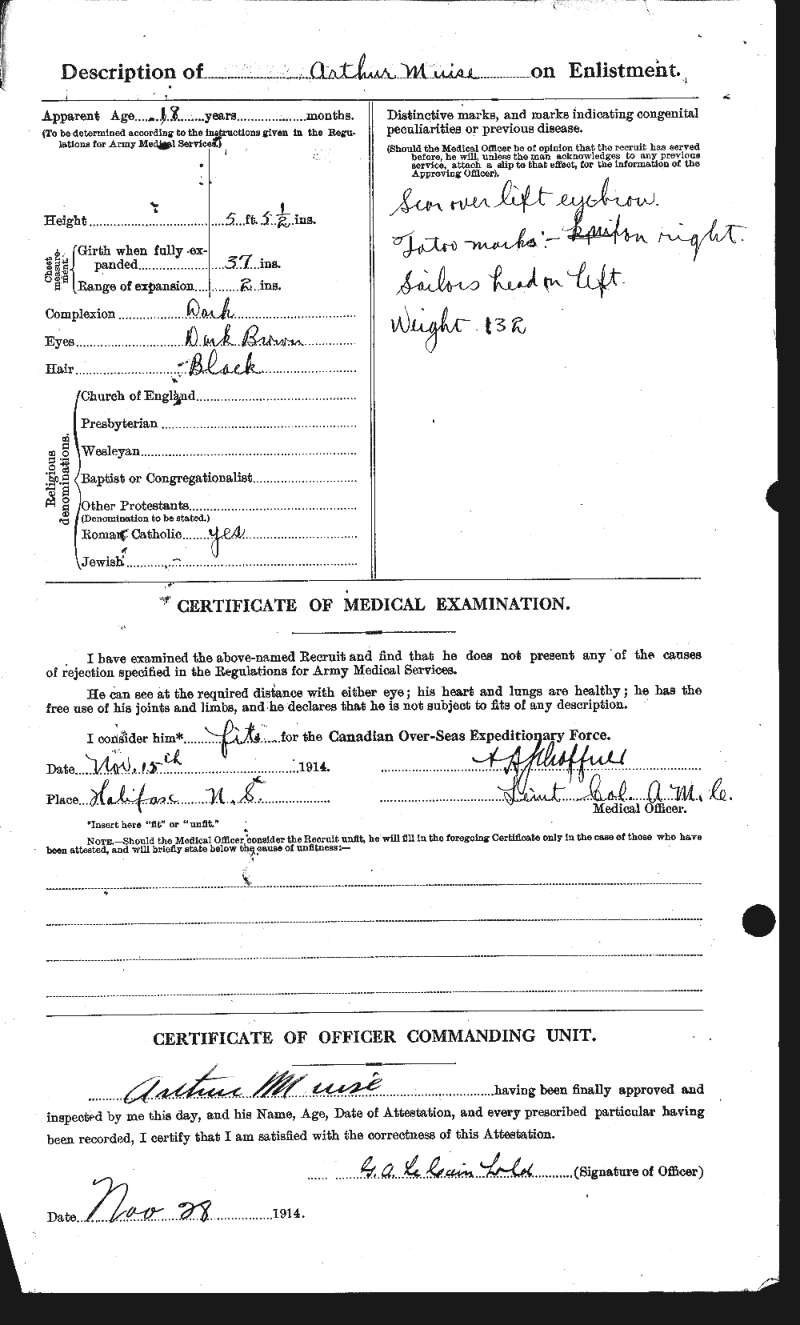 Description of Arthur Muise on Enlistment.
Apparent Age 18 years months.
(To be determined according to the instructions given in the Regu-
lations for Army Medical Services.)
Height 5 ft. 5 ½ ins.
Chest measure-ment.
Girth when fully ex-
panded 37 ins.
Range of expansion 2 ins.
Complexion Dark
Eyes Dark Brown
Hair Black
Religious denominations.
Church of England
Presbyterian
Wesleyan
Baptist or Congregationalist
Other Protestants
(Denomination to be stated.)
Roman Catholic yes
Jewish
Distinctive marks, and marks indicating congenital
peculiarities or previous disease.
(Should the Medical Officer be of opinion that the recruit has served
before, he will, unless the man acknowledges to any previous
service, attach a slip to that effect, for the information of the
Approving Officer).
Scar over left eyebrow.
Tatoo marks:- on right.
Sailors head on left.
Weight 132
CERTIFICATE OF MEDICAL EXAMINATION.
I have examined the above-named Recruit and find that he does not present any of the causes
of rejection specified in the Regulations for Army Medical Services.
He can see at the required distance with either eye; his heart and lungs are healthy; he has the
free use of his joints and limbs, and he declares that he is not subject to fits of any description.
I consider him* fit for the Canadian Over-Seas Expeditionary Force.
Date Nov. 15th 1914.
Place Halifax N. S. Lieut Col. A.M.C.
Medical Officer.
*Insert here "fit" or "unfit."
NOTE.—Should the Medical Officer consider the Recruit unfit, he will fill in the foregoing Certificate only in the case of those who have
been attested, and will briefly state below the cause of unfitness:—
CERTIFICATE OF OFFICER COMMANDING UNIT.
Arthur Muise having been finally approved and
inspected by me this day, and his Name, Age, Date of Attestation, and every prescribed particular having
been recorded, I certify that I am satisfied with the correctness of this Attestation.
G. A. Le Cain (Signature of Officer)
Date Nov 28 1914.